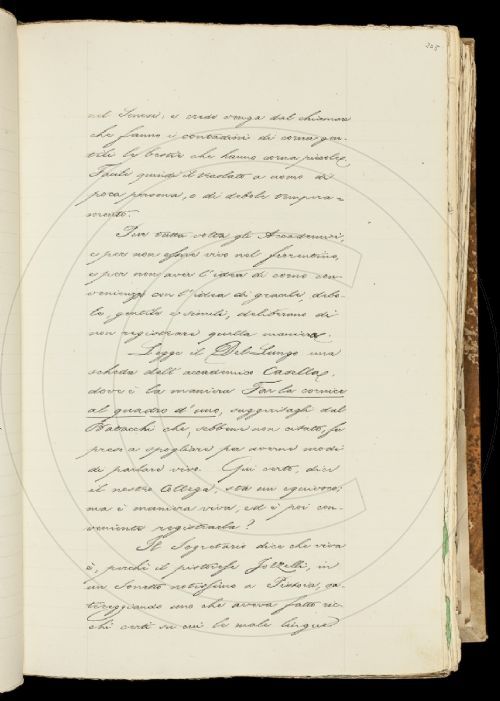 305
nel Senese; e credo venga dal chiamare
che fanno i contadini di corna gen-
tili le bestie che hanno corna piccole.
Facile quindi il traslato a uomo di
poca persona, o di debole tempera-
mento.
Pur tutta volta gli Accademici,
e per non esser vivo nel fiorentino,
e per non aver l'idea di corno con-
venienza con l'idea di gracile, debo-
le, gentile e simili, deliberano di
non registrare quella maniera.
Legge il Del Lungo una
scheda dell'accademico Casella,
dove è la maniera Far la cornice
al quadro d'uno, suggeritagli dal
Batacchi che, sebbene non citato, fu
preso a spogliare per averne modi
di parlare vivo. Qui certo, dice
il nostro Collega, sta un equivoco;
ma è maniera viva, ed è poi con-
veniente registrarla?
Il Segretario dice che viva
è, perchè il pistoiese Jozzelli, in
un Sonetto notissimo a Pistoia, sa-
tireggiando uno che aveva fatto ric-
chi certi su cui le male lingue